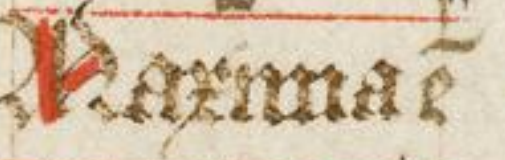 Maxima ē